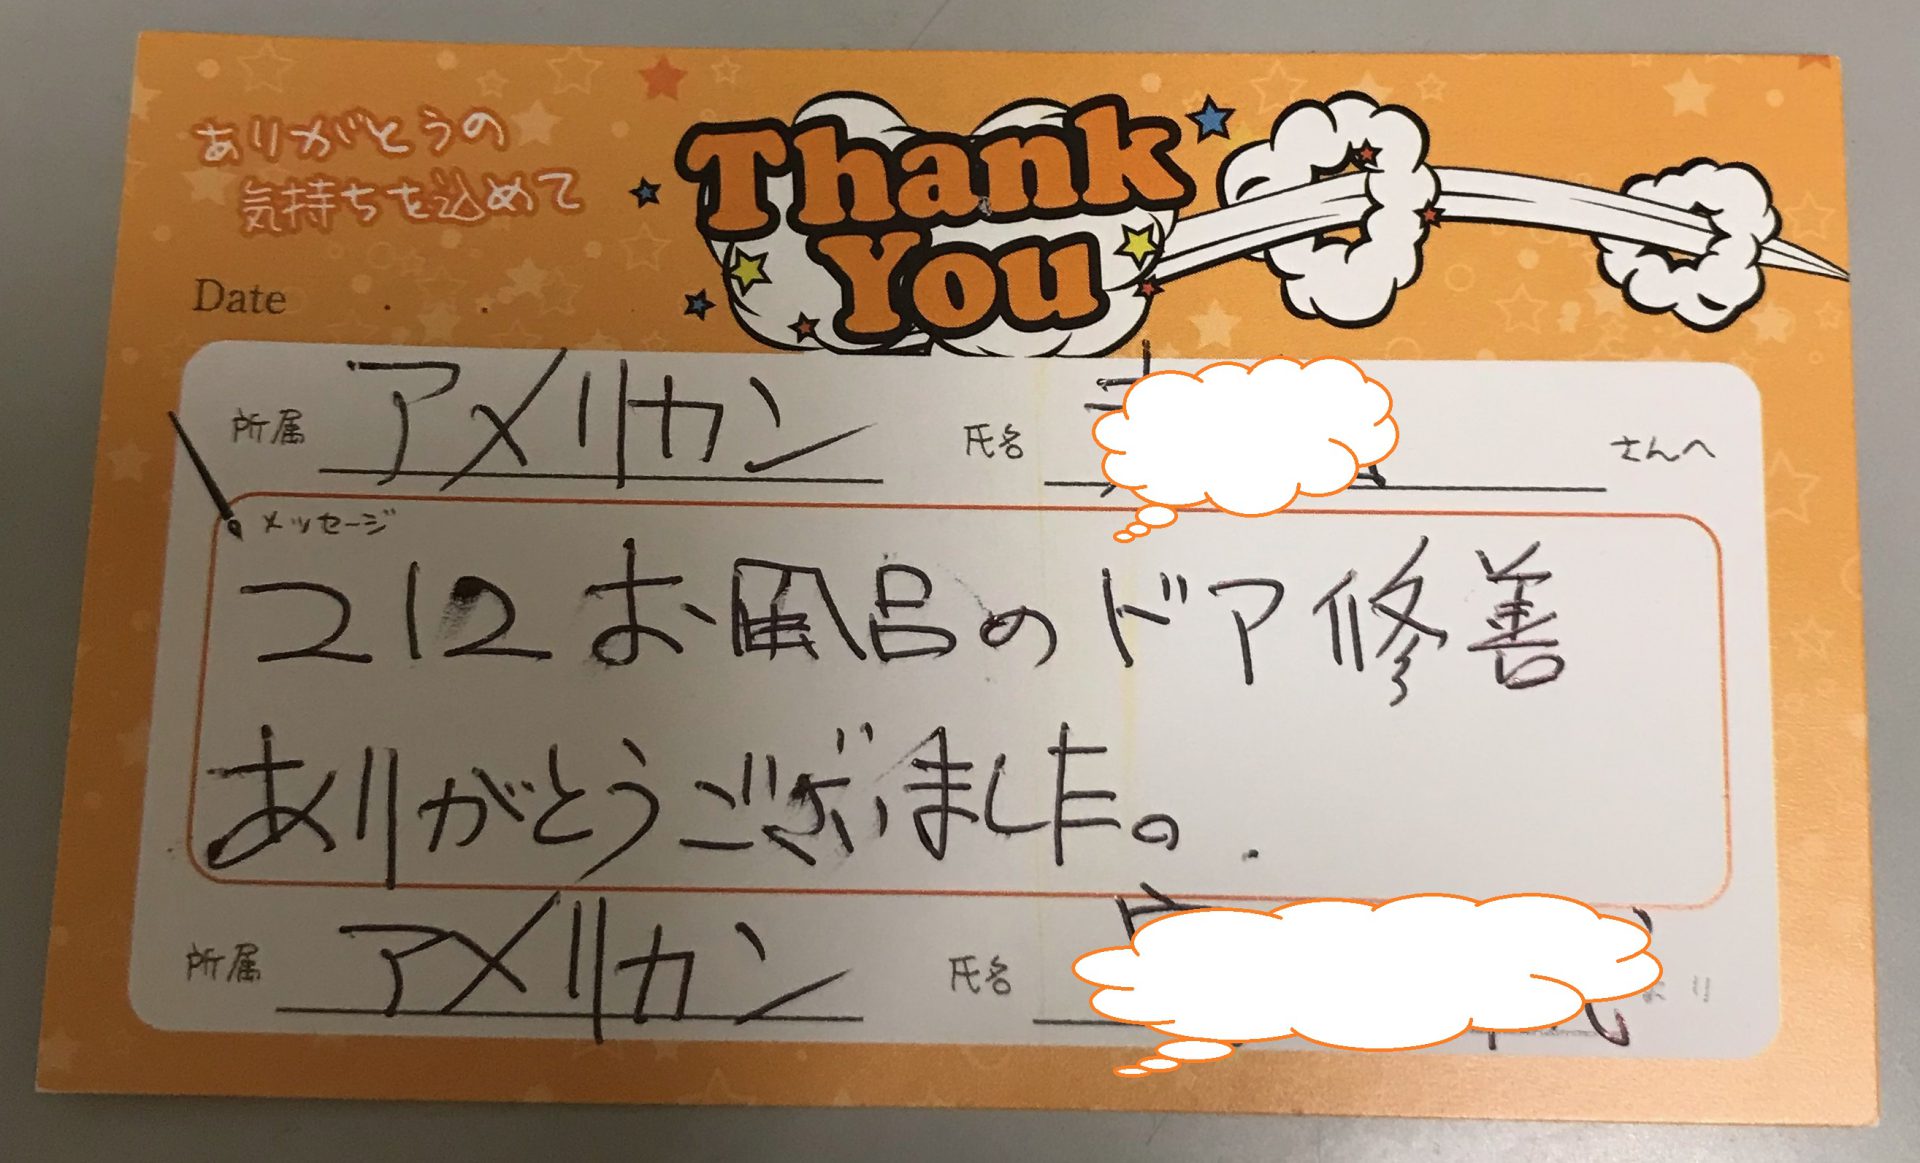 ありがとうの
気持ちを込めて
Thank
You
Date . .
所属 アメリカン 氏名 さんへ
メッセージ
212お風呂のドア修善
ありがとうございました。
所属 アメリカン 氏名 より